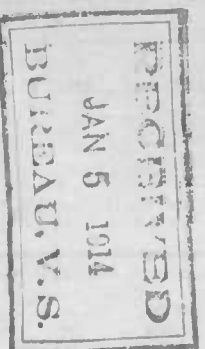 RECEIVED
JAN 5 1914
BUREAU, V.S.